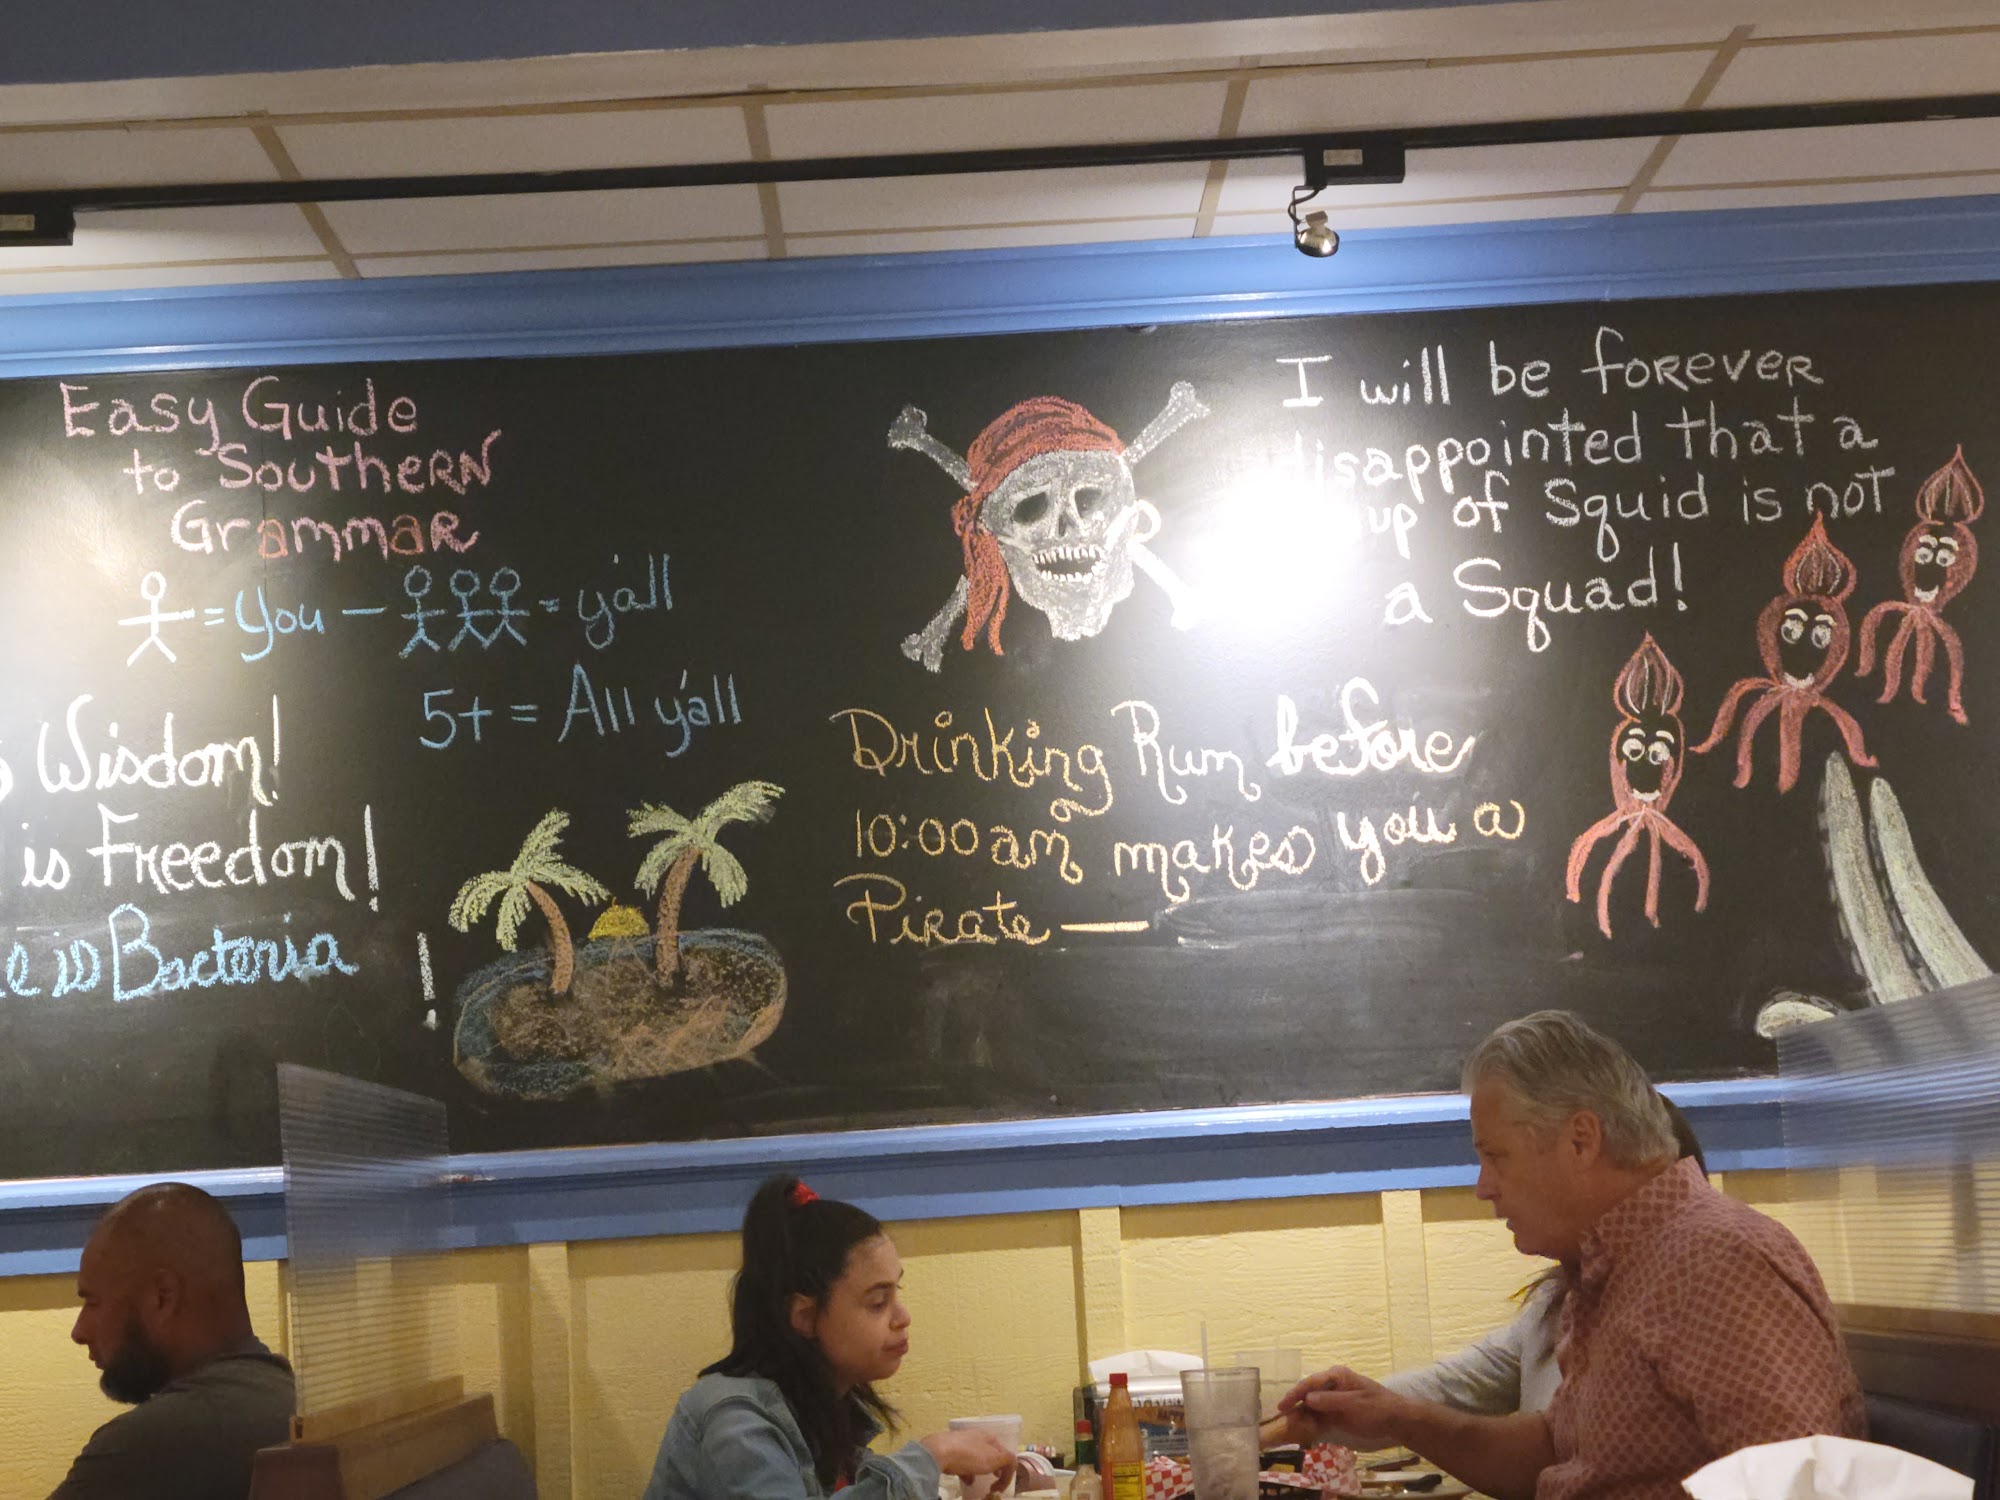 Easy Guide
to Southern
Grammar
= you - = y'all
5+ = All y'all
Wisdom!
is Freedom!
is Bacteria
!
Drinking Rum before
10:00 am makes you a
Pirate —
I will be forever
disappointed that a
up of Squid is not
a Squad!